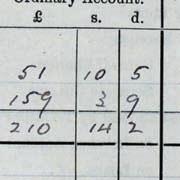 Ordinary Account.
£ s. d.
51 10 5
159 3 9
210 14 2